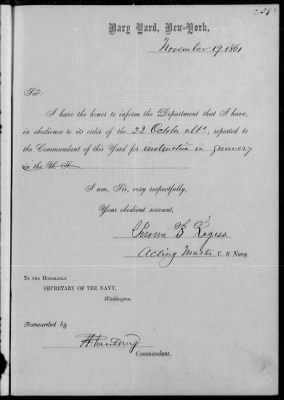 Navy Yard, New-York,
November 19. 1861
Sir:
I have the honor to inform the Department that I have,
in obedience to its order of the 22 October ulto, reported to
the Commandant of this Yard for instruction in gunnery
in the U. S.
I am, Sir, very respectfully,
Your obedient servant,
B Rogers
Acting Master U. S. Navy.
To the Honorable
SECRETARY OF THE NAVY,
Washington.
Forwarded by
Commandant.